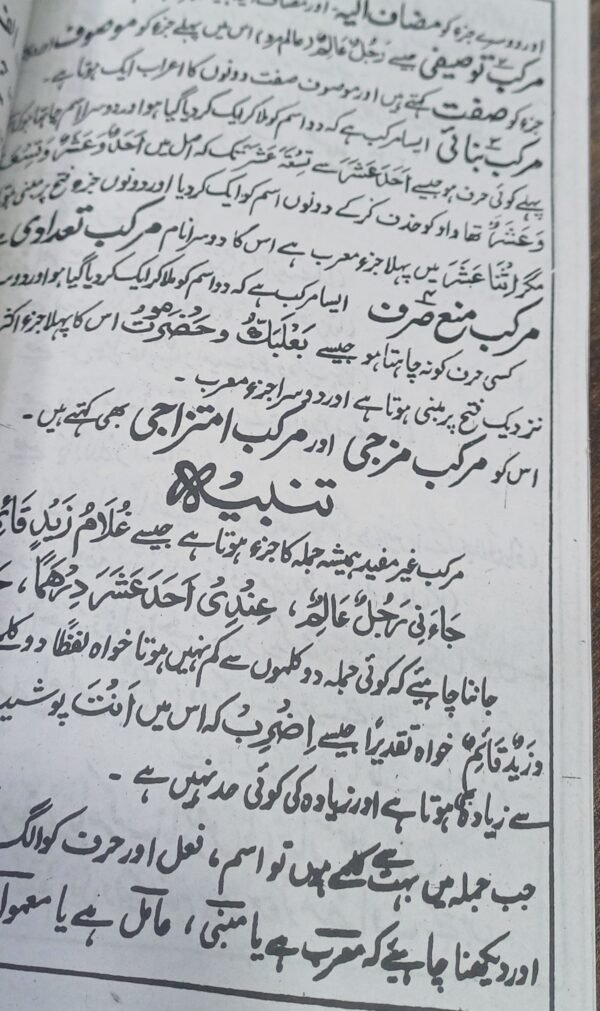 اور دوسرے جزء کو مضاف الیہ اور مضاف
مرکب توصیفی جیسے رَجُلٌ عَالِمٌ (عالم مرد) اس میں پہلے جزء کو موصوف اور
جزء کو صفت کہتے ہیں اور موصوف صفت دونوں کا اعراب ایک ہوتا ہے۔
مرکب بنائی ایسا مرکب ہے کہ دو اسم کو ملا کر ایک کر دیا گیا ہو اور دوسرا اسم چاہتا ہو
پہلے کوئی حرف ہو جیسے اَحَدَ عَشَرَ سے تِسْعَةَ عَشَرَ تک کہ اصل میں اَحَدٌ وَّعَشَرٌ وَتِسْعَةٌ
وَّعَشَرٌ تھا واو کو حذف کر کے دونوں اسم کو ایک کر دیا اور دونوں جزء فتح پر مبنی
مگر اِثْنَا عَشَرَ میں پہلا جزء معرب ہے اس کا دوسرا نام مرکب تعدادی ہے
مرکب منع صرف ایسا مرکب ہے کہ دو اسم کو ملا کر ایک کر دیا گیا ہو اور
کسی حرف کو نہ چاہتا ہو جیسے بَعْلَبَكُّ و حَضْرَمَوْتُ اس کا پہلا جزء اکثر
نزدیک فتح پر مبنی ہوتا ہے اور دوسرا جزء معرب۔
اس کو مرکب مزجی اور مرکب امتزاجی بھی کہتے ہیں۔
تنبیہ
مرکب غیر مفید ہمیشہ جملہ کا جزء ہوتا ہے جیسے غُلَامُ زَیْدٍ
جَاءَنِی رَجُلٌ عَالِمٌ ، عِنْدِیْ اَحَدَ عَشَرَ دِرْهَمًا ،
جاننا چاہیئے کہ کوئی جملہ دو کلموں سے کم نہیں ہوتا خواہ لفظًا دو
و زَیْدٌ قَائِمٌ خواہ تقدیرًا جیسے اِضْرِبْ کہ اس میں اَنْتَ
سے زیادہ بھی ہوتا ہے اور زیادہ کی کوئی حد نہیں ہے۔
جب جملہ میں بہت سے کلمے ہوں تو اسم، فعل اور حرف کو الگ
اور دیکھنا چاہیئے کہ معرب ہے یا مبنی، عامل ہے یا